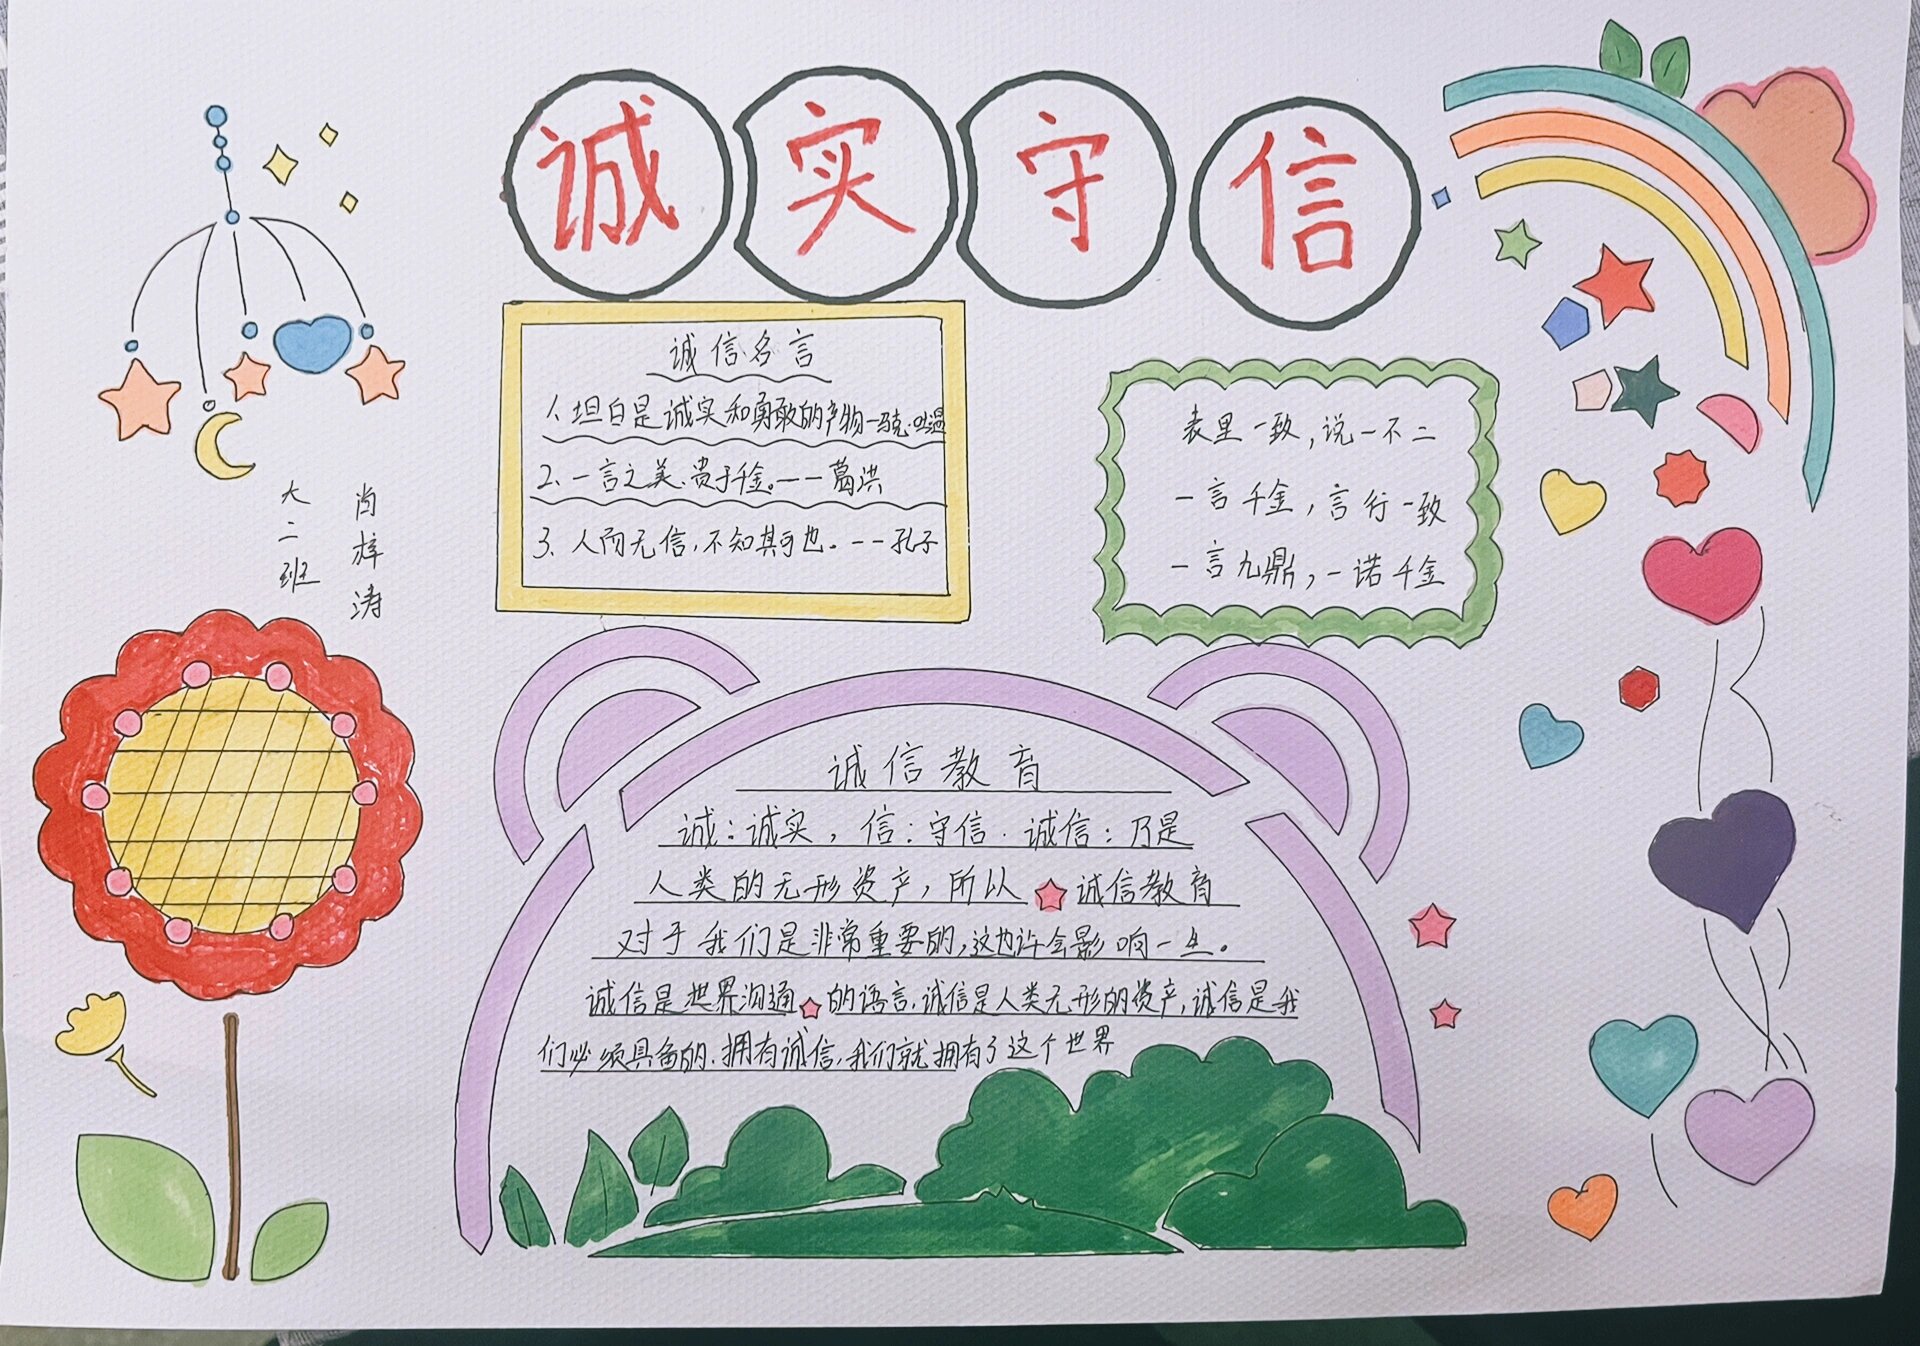 诚实守信
诚信名言
1、坦白是诚实和勇敢的产物--马克·吐温
2、一言之美、贵于千金。--葛洪
3、人而无信,不知其可也。--孔子
表里一致,说一不二
一言千金,言行一致
一言九鼎,一诺千金
大二班
肖梓涛
诚信教育
诚:诚实,信:守信.诚信:乃是
人类的无形资产,所以诚信教育
对于我们是非常重要的,这也许会影响一生。
诚信是世界沟通的语言,诚信是人类无形的资产,诚信是我
们必须具备的.拥有诚信,我们就拥有了这个世界